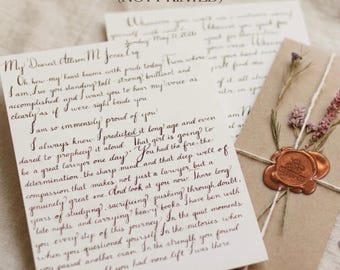 (NOT PRINTED)
Sunday May 11, 2026
My Dearest Allison M.
Oh how my heart beams with pride today. From where
I am, I see you standing tall, strong, brilliant and
accomplished and I want you to hear my voice as
clearly as if were right beside you.
I am so immensely proud of you!
I always knew, I predicted it long ago and even
dared to prophesy it aloud, "That girl is going to
be a great lawyer one day." You had the fire, the
determination, the sharp mind and that deep well of
compassion that makes not just a lawyer, but a
genuinely great one. And look at you now. Those long
years of studying, sacrificing, pushing through doubt,
late nights and carrying heavy books. I have been with
you every step of this journey. In the quiet moments
when you questioned yourself. In the victories when
you passed another exam. In the strength you found
you had none left. I was there